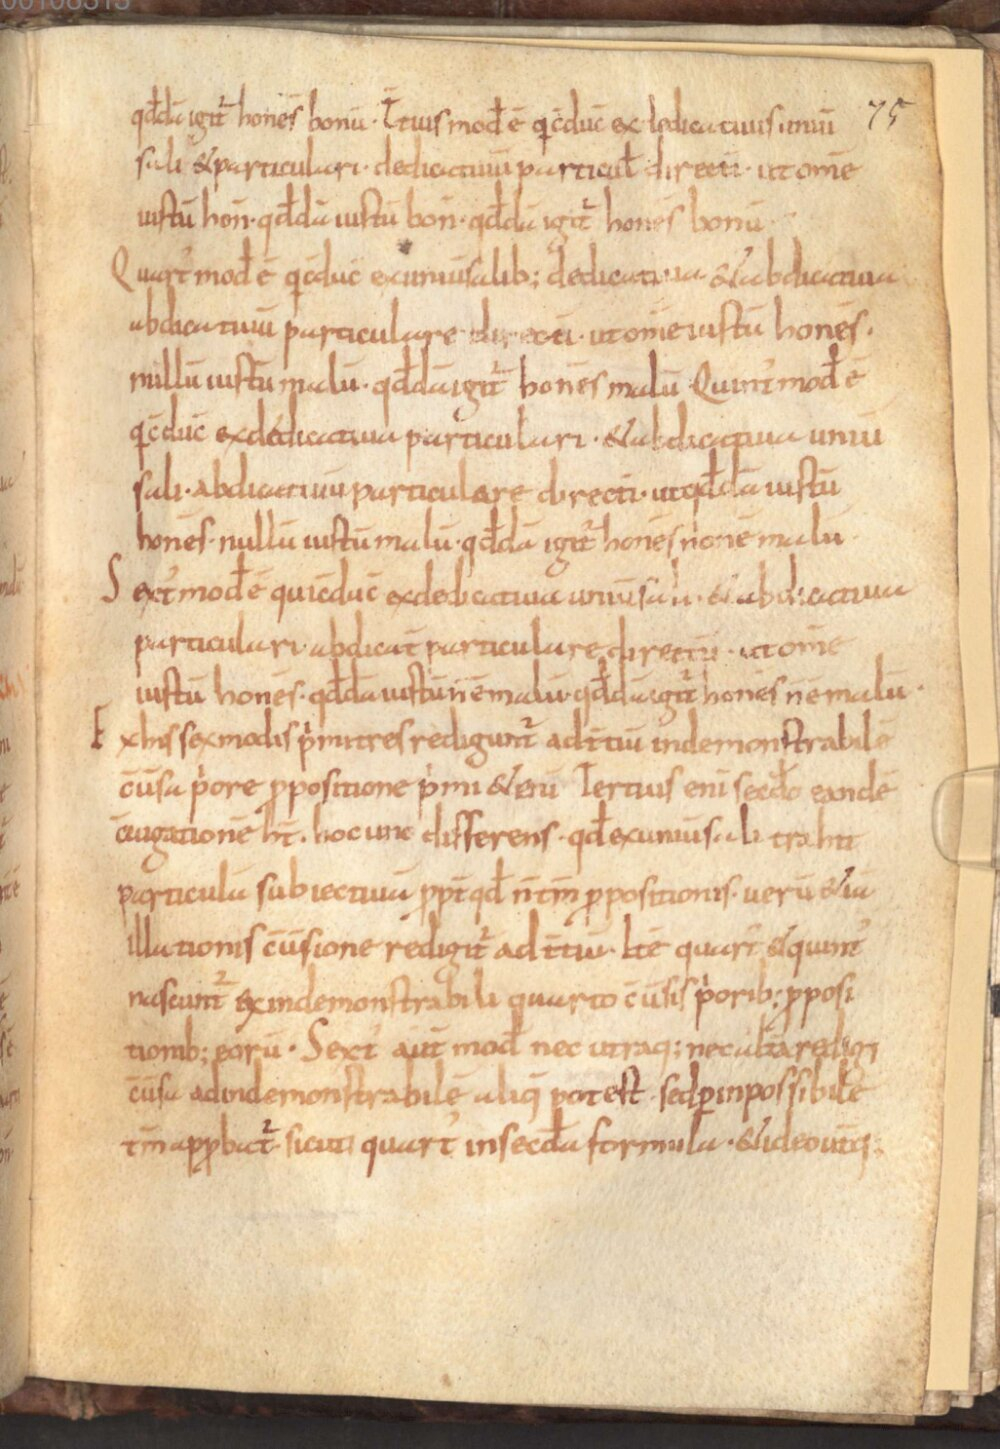 00108315
75
qđdā igit᷑ hones̄ bonū. T̄tius mod̄ ē qi c̄duc̄ ex dedicatiuis uniū
sali & particulari. dedicatiuū particul̄ directī. ut om̄e
iustū hon̄. qđdā iustū bon̄. qđdā igit᷑ hones̄ bonū.
Quart᾽ mod̄ ē qi c̄duc̄ ex uniūsalib; dedicatiua & abdicatiua
abdicatiuū particulare directī. ut om̄e iustū hones̄.
nullū iustū malū. qđdā igit᷑ hones̄ malū. Quint᾽ mod̄ ē
qi c̄duc̄ ex dedicatiua particulari. & abdicatiua uniū
sali. abdicatiuū particulare directī. ut qđdā iustū
hones̄. nullū iustū malū. qđdā igit᷑ hones̄ non ē malū.
Sext᾽ mod̄ ē qui c̄duc̄ ex dedicatiua uniūsali. & abdicatiua
particulari. abdicat̄ particulare directū. ut om̄e
iustū hones̄. qđdā iustū n̄ ē malū. qđdā igit᷑ hones̄ n̄ ē malū.
Ex his sex modis p᾽mi tres redigunt᷑ ad t̄tiū indemonstrabilē
c̄ūsa p᾽ore ꝓpositione p᾽mi & Tertius eni secd̄o eandē
iugationē ht̄. hoc uno differens. qđ ex uniūsali trahit
particulā subiectiuā ꝓpt̄ qđ n̄ tm̄ ꝓpositionis. uerū & iā
illationis c̄ūsione redigit᷑ ad t̄tiū. Itē quart᾽ & quint᾽
nascunt᷑ ex indemonstrabili quarto c̄ūsis p᾽orib; ꝓposi
tionib; eorū. Sext᾽ aut̄ mod̄ nec utraq; nec alt̄a redigi
c̄ūsa ad indemonstrabilē aliq̄ potest. sed ꝑ inpossibile
tm̄ apꝓbat᷑. sicut quart᾽ in secd̄a formula. & ideo utiq;